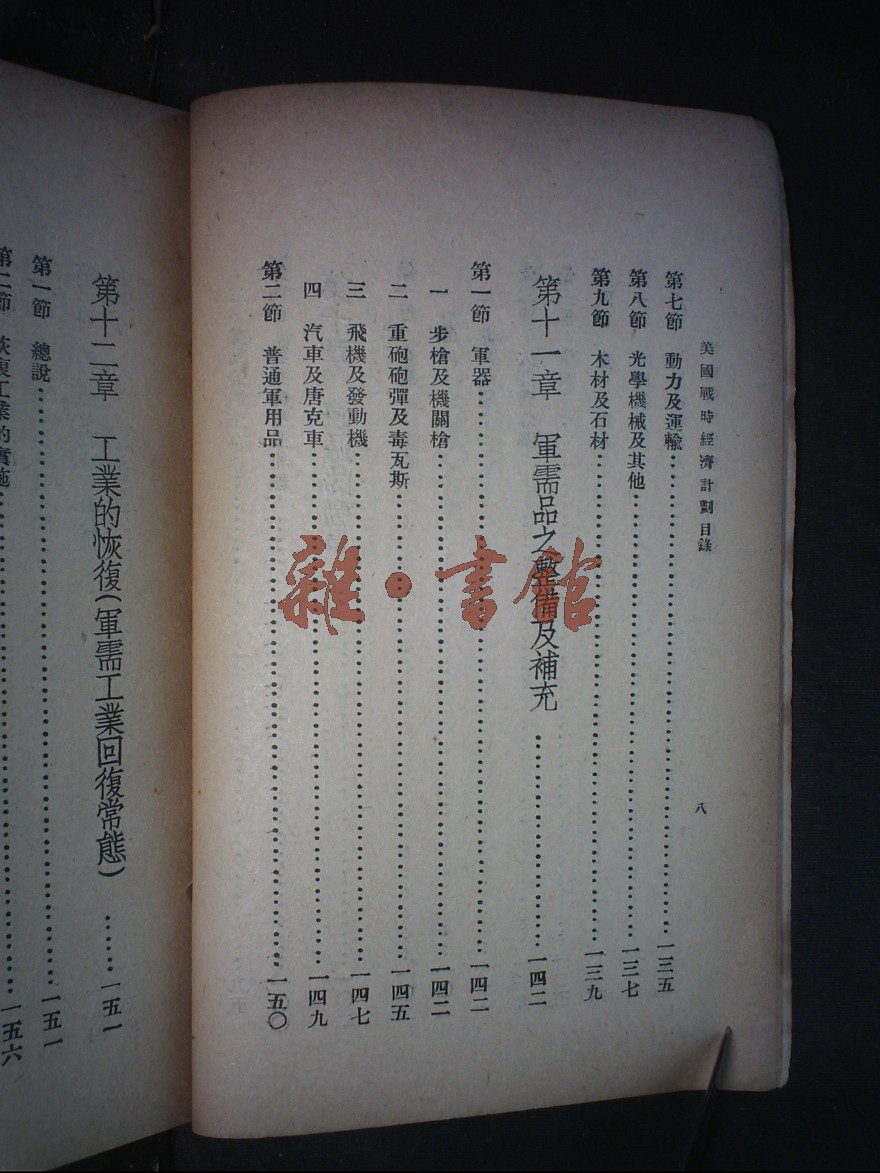 美國戰時經濟計劃目錄
八
第七節 動力及運輸……一三五
第八節 光學機械及其他……一三七
第九節 木材及石材……一三九
第十一章 軍需品之整備及補充……一四二
第一節 軍器……一四二
一 步槍及機關槍……一四二
二 重砲砲彈及毒瓦斯……一四五
三 飛機及發動機……一四七
四 汽車及唐克車……一四九
第二節 普通軍用品……一五〇
第十二章 工業的恢復(軍需工業回復常態)……一五一
第一節 總說……一五一
第二節 恢復工業的實施……一五六
雜·書館